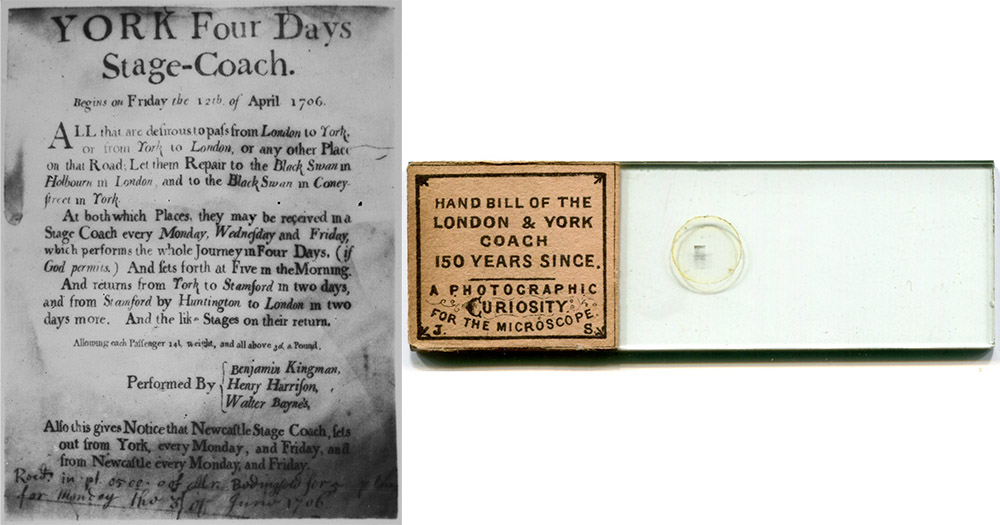 YORK Four Days
Stage-Coach.
Begins on Friday the 12th. of April 1706.
ALL that are deſirous to paſs from London to York,
or from York to London, or any other Place
on that Road; Let them Repair to the Black Swan in
Holbourn in London, and to the Black Swan in Coney-
ſtreet in York.
At both which Places, they may be received in a
Stage Coach every Monday, Wedneſday and Friday,
which performs the whole Journey in Four Days, (if
God permits.) And ſets forth at Five in the Morning.
And returns from York to Stamford in two days,
and from Stamford by Huntington to London in two
days more. And the like Stages on their return.
Allowing each Paſſenger 14l. weight, and all above 3d. a Pound.
Performed By
Benjamin Kingman,
Henry Harriſon,
Walter Bayne's,
Alſo this gives Notice that Newcaſtle Stage Coach, ſets
out from York, every Monday, and Friday, and
from Newcaſtle every Monday, and Friday.
Recd. in pt. 05.00. of Mr. Bodingfold for
for Monday the 3 of June 1706
HAND BILL OF THE
LONDON & YORK
COACH
150 YEARS SINCE.
A PHOTOGRAPHIC
CURIOSITY.
FOR THE MICROSCOPE.
J. S.